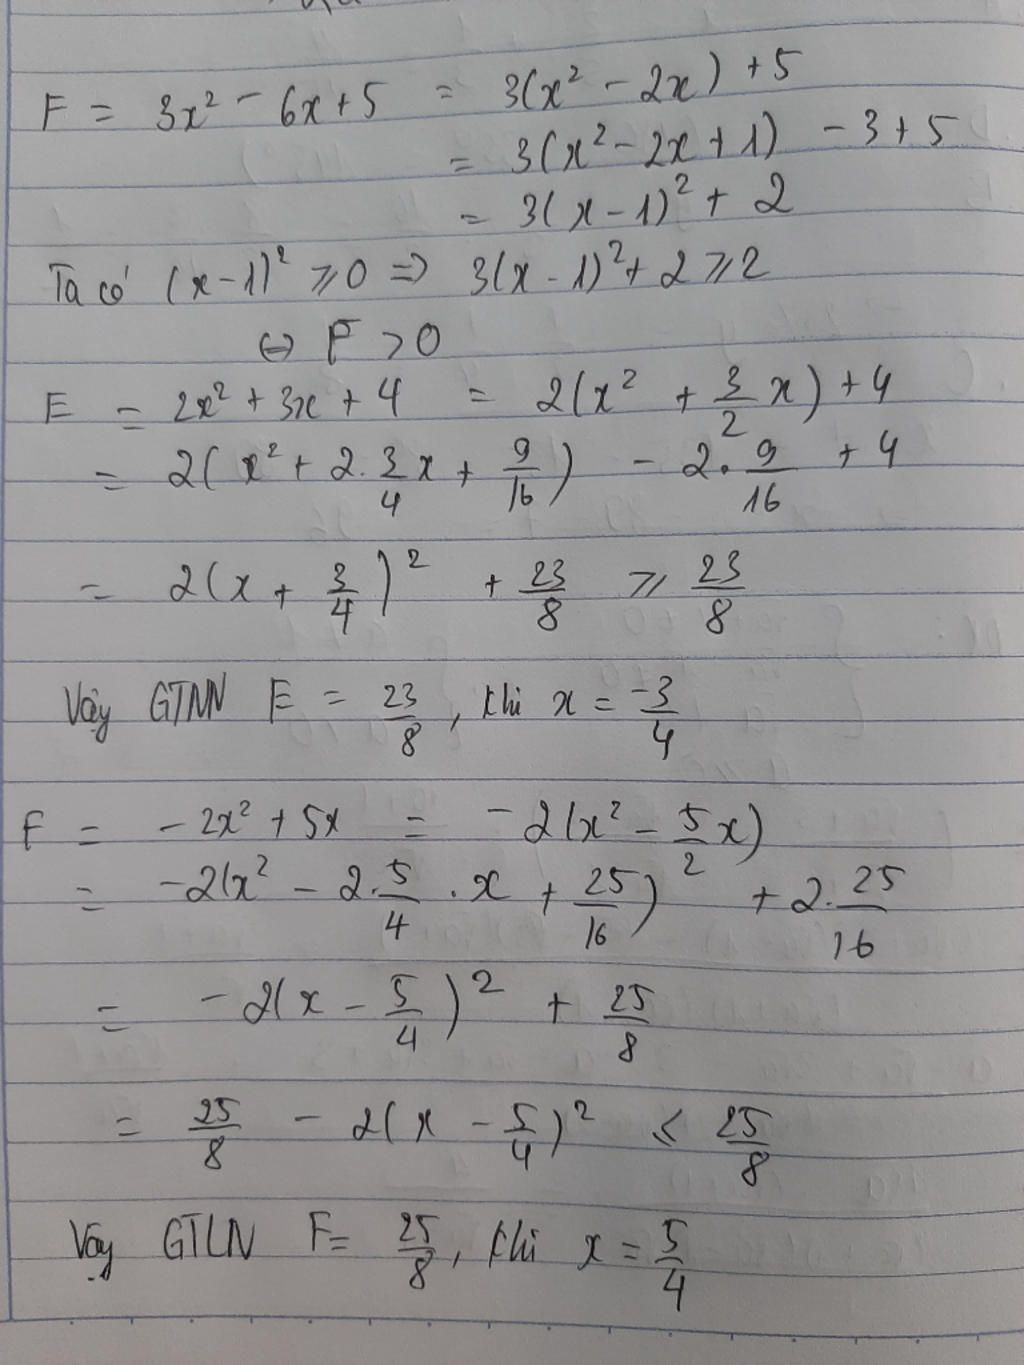 F = 3x² - 6x + 5 = 3(x² - 2x) + 5
= 3(x² - 2x + 1) - 3 + 5
= 3(x - 1)² + 2
Ta có (x - 1)² ⩾ 0 => 3(x - 1)² + 2 ⩾ 2
⇔ F > 0
E = 2x² + 3x + 4 = 2(x² + 3/2 x) + 4
= 2(x² + 2. 3/4 x + 9/16) - 2. 9/16 + 4
= 2(x + 3/4)² + 23/8 ⩾ 23/8
Vậy GTNN E = 23/8, khi x = -3/4
F = - 2x² + 5x = - 2(x² - 5/2 x)
= -2(x² - 2. 5/4 . x + 25/16) + 2. 25/16
= - 2(x - 5/4)² + 25/8
= 25/8 - 2(x - 5/4)² ⩽ 25/8
Vậy GTLN F = 25/8, khi x = 5/4